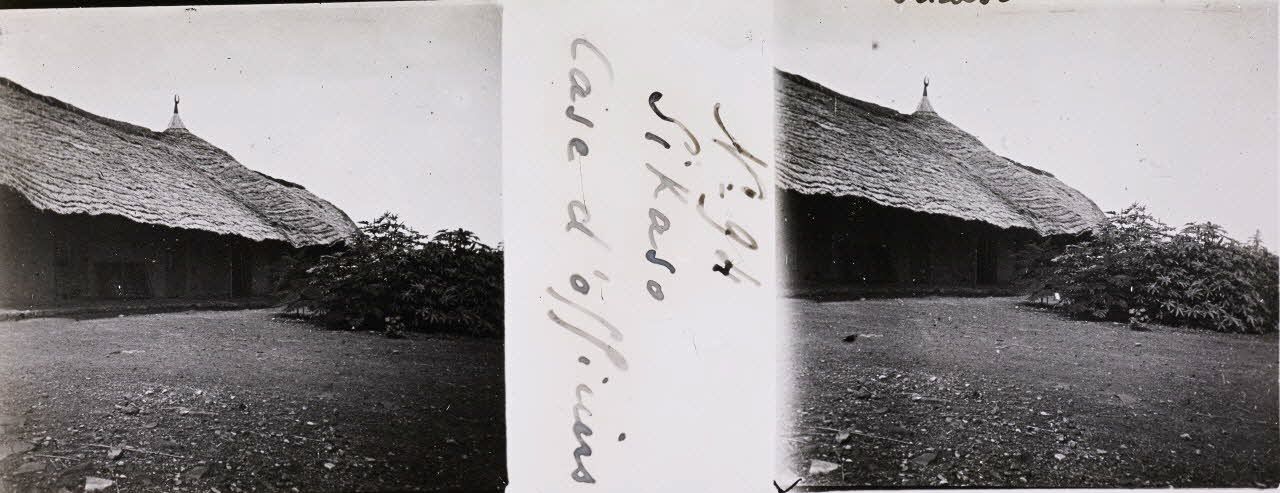 N° 94
Sikaso
Case d'officiers